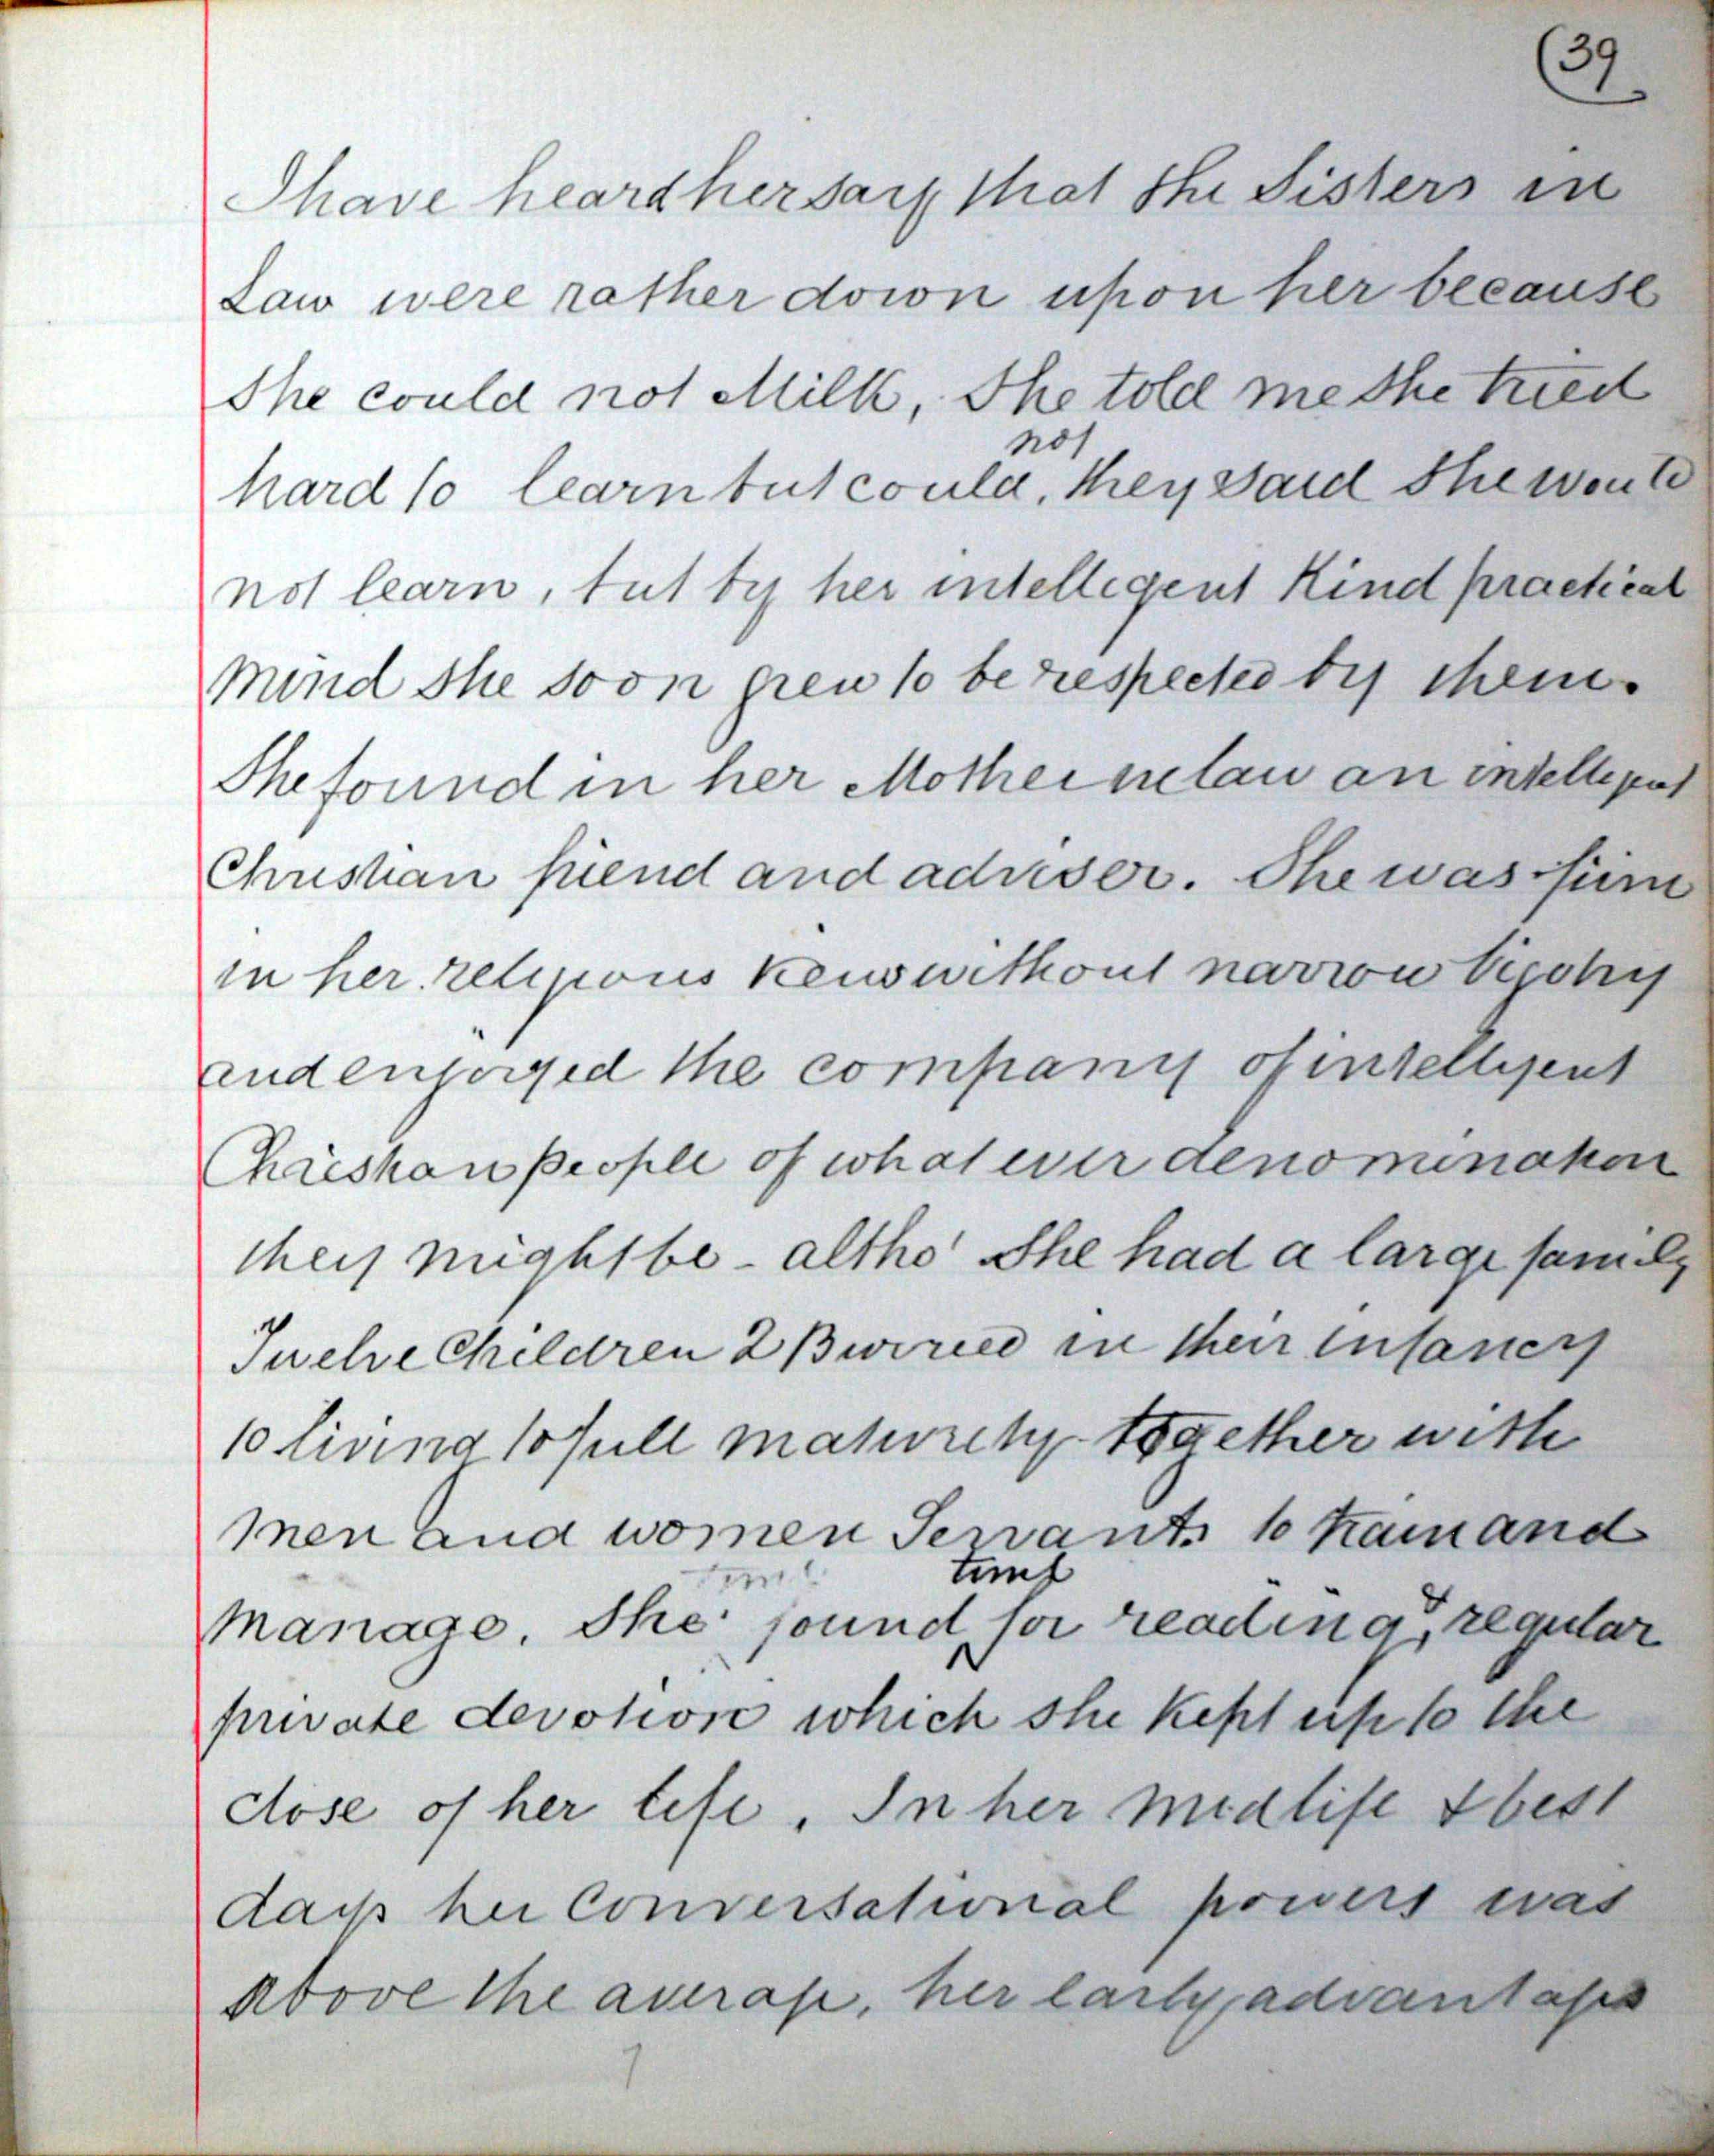 (39
I have heard her say that the Sisters in
Law were rather down upon her because
She could not Milk, She told me she tried
not
hard to learn but could, they said She would
not learn, but by her intellegent Kind practical
mind She soon grew to be respected by them.
She found in her Mother inlaw an intellegent
Christian friend and adviser. She was firm
in her religious views without narrow bigotry
and enjoyed the company of intelligent
Christian people of what ever denomination
they might be - altho' She had a large family
Twelve Children 2 Burried in their infancy
10 living to full maturety together with
men and women Servants to train and
time
manage. She found for reading, & regular
private devotion which she Kept up to the
close of her life. In her midlife & best
days her Conversational powers was
above the average, her early advantages